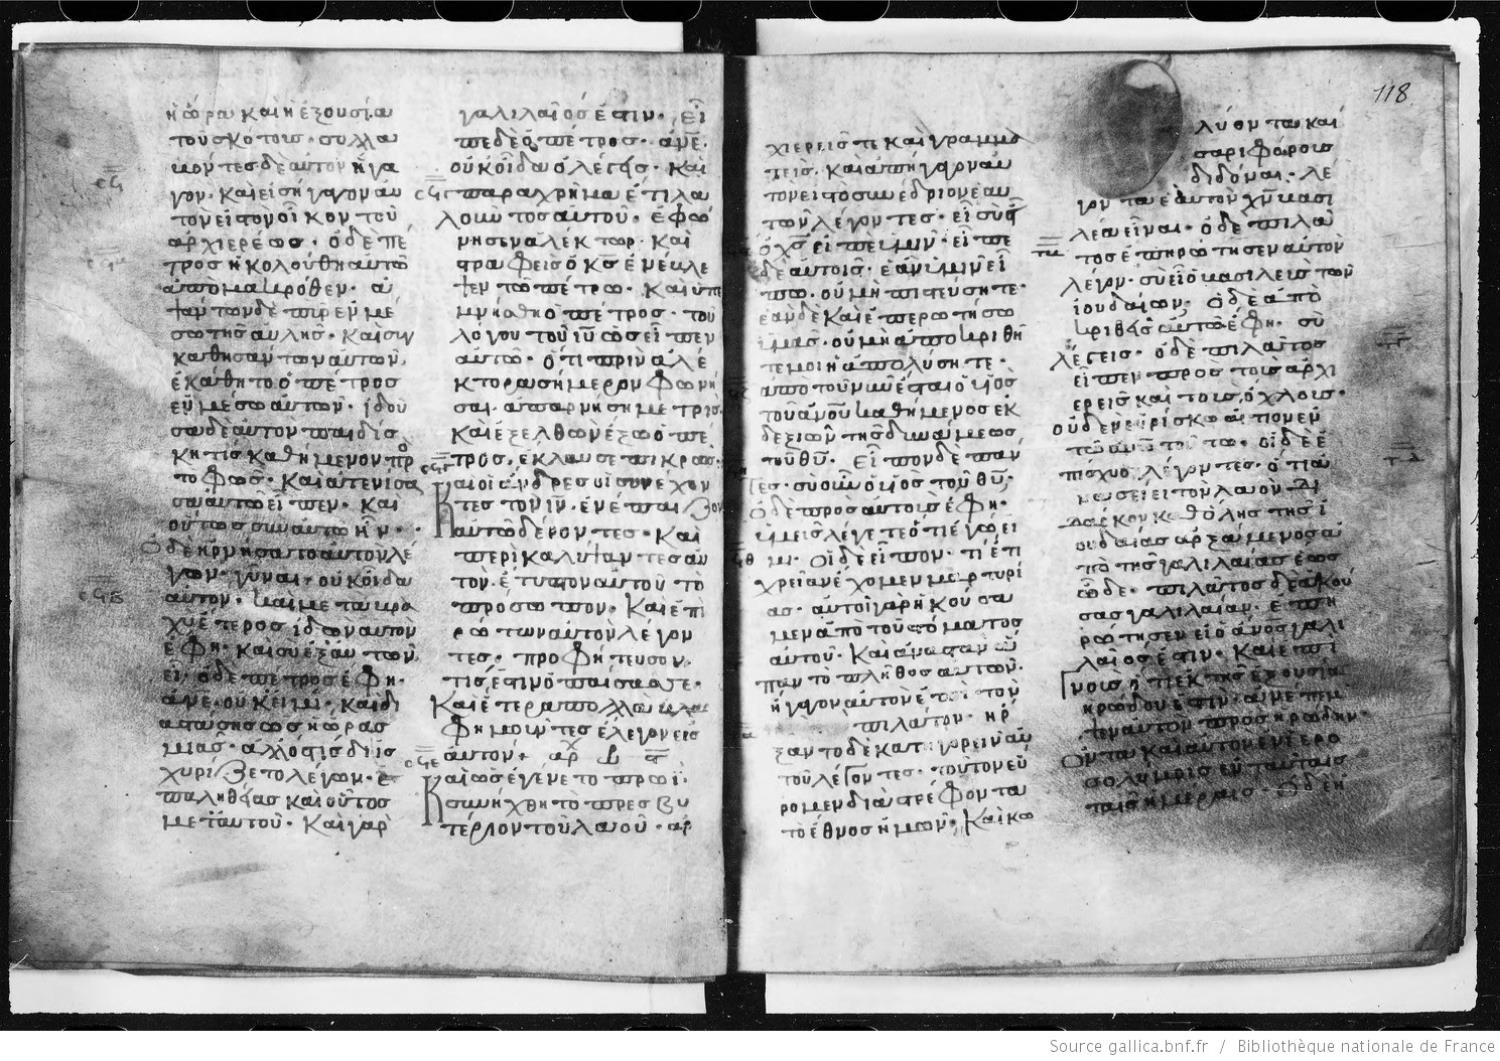 ἡ ὥρα καὶ ἡ ἐξουσία
τοῦ σκότους· συλλα
βόντες δὲ αὐτὸν ἤγα
γον· καὶ εἰσήγαγον αὐ
τὸν εἰς τὸν οἶκον τοῦ
ἀρχιερέως· ὁ δὲ πέ
τρος ἠκολούθη αὐτῶ
ἀπὸ μακρόθεν· ἁ
ψάντων δὲ πῦρ ἐν μέ
σω τῆς αὐλῆς· καὶ συγ
καθησάντων αὐτῶν,
ἐκάθητο ὁ πέτρος
ἐν μέσω αὐτῶν· ἰδοῦ
σα δὲ αὐτὸν παιδίσ
κη τὶς καθήμενον πρ
τὸ φῶς· καὶ ἀτενίσα
σα αὐτῶ εἶπεν· καὶ
οὗτος σὺν αὐτῶ ἦν·
ὁ δὲ ἠρνήσατο αὐτὸν λέ
γων· γύναι οὐκ οἶδα
αὐτόν· καὶ μετὰ βρα
χὺ ἕτερος ἰδὼν αὐτὸν
ἔφη· καὶ σὺ ἐξ αὐτῶν
εἶ· ὁ δὲ πέτρος ἔφη·
ἄνε· οὐκ εἰμί· καὶ δι
αστάσης ὡς ἡ ὥρας
μιᾶς· ἄλλος τὶς διϊσ
χυρίζετο λέγων· ἐ
π ἀληθείας καὶ οὗτος
μετ αὐτοῦ· καὶ γὰρ
γαλιλαῖός ἐστιν· εἶ
πε δὲ ὁ πέτρος· ἄνε·
οὐκ οἶδα ὁ λέγεις· καὶ
παραχρῆμα ἔτι λα
λοῦντος αὐτοῦ· ἐφώ
νησεν ἀλέκτωρ· καὶ
στραφεὶς ὁ κς ἐνέβλε
ψεν τῶ πέτρω· καὶ ὑπε
μνήσθη ὁ πέτρος· τοῦ
λόγου τοῦ ιυ ὡς εἶπεν
αὐτῶ· ὅτι πρὶν ἀλέ
κτορα σήμερον φωνῆ
σαι· ἀπαρνήση με τρίς·
καὶ ἐξελθὼν ἔξω ὁ πέ
τρος, ἔκλαυσε πικρῶς·
Καὶ οἱ ἄνδρες οἱ συνέχον
τες τὸν ιν· ἐνέπαιζον
αὐτῶ δέροντες· καὶ
περικαλύψαντες αὐ
τὸν· ἔτυπτον αὐτοῦ τὸ
πρόσωπον· καὶ ἐπη
ρώτων αὐτὸν λέγον
τες· προφήτευσον,
τίς ἐστιν ὁ παίσας σε·
καὶ ἕτερα πολλὰ βλασ
φημοῦντες ἔλεγον εἰς
αὐτόν+
Καὶ ὡς ἐγένετο πρωῒ·
συνήχθη τὸ πρεσβυ
τέριον τοῦ λαοῦ· ἀρ
118
χιερεῖς τε καὶ γραμμα
τεῖς· καὶ ἀπήγαγον αὐ
τὸν εἰς τὸ συνέδριον ἑαυ
τῶν λέγοντες· εἰ σὺ εἶ
ὁ χς εἰπὲ ἡμῖν· εἶπε
δὲ αὐτοῖς· ἐὰν ὑμῖν εἴ
πω· οὐ μὴ πιστεύσητε·
ἐὰν δὲ καὶ ἐπερωτήσω
ὑμᾶς· οὐ μὴ ἀποκριθῆ
τέ μοι ἢ ἀπολύσητε·
ἀπὸ τοῦ νῦν ἔσται ὁ υἱὸς
τοῦ ανου καθήμενος ἐκ
δεξιῶν τῆς δυνάμεως
τοῦ θυ· εἶπον δὲ πάν
τες· σὺ οὖν εἶ ὁ υἱὸς τοῦ θυ·
ὁ δὲ πρὸς αὐτοὺς ἔφη·
ὑμεῖς λέγετε ὅτι ἐγώ εἰ
μι· οἱ δὲ εἶπον· τί ἔτι
χρείαν ἔχομεν μαρτυρί
ας· αὐτοὶ γὰρ ἠκούσα
μεν ἀπὸ τοῦ στόματος
αὐτοῦ· καὶ ἀναστὰν ἅ
παν τὸ πλῆθος αὐτῶν·
ἤγαγον αὐτὸν ἐπὶ τὸν
πιλάτον· ἤρ
ξαντο δὲ κατηγορεῖν αὐ
τοῦ λέγοντες· τοῦτον εὕ
ρομεν διαστρέφοντα
τὸ ἔθνος ἡμῶν· καὶ κω
λύοντα καί
σαρι φόρους
διδόναι· λέ
γοντα ἑαυτὸν χν βασι
λέα εἶναι· ὁ δὲ πιλά
τος ἐπηρώτησεν αὐτὸν
λέγων· σὺ εἶ ὁ βασιλεὺς τῶν
ἰουδαίων· ὁ δὲ ἀπο
κριθεὶς αὐτῶ ἔφη· σὺ
λέγεις· ὁ δὲ πιλάτος
εἶπεν πρὸς τοὺς ἀρχι
ερεῖς καὶ τοὺς ὄχλους·
οὐδὲν εὑρίσκω αἴτιον ἐν
τῶ ανω τούτω· οἱ δὲ ἐ
πίσχυον λέγοντες· ὅτι ἀ
νασείει τὸν λαὸν δι
δάσκων καθ ὅλης τῆς ἰ
ουδαίας ἀρξάμενος ἀ
πὸ τῆς γαλιλαίας ἕως
ὧδε· πιλάτος δὲ ἀκού
σας γαλιλαίαν· ἐπη
ρώτησεν εἰ ὁ ανος γαλι
λαῖός ἐστιν· καὶ ἐπι
γνοὺς ὅτι ἐκ τῆς ἐξουσίας
ἡρώδου ἐστὶν· ἀνέπεμ
ψεν αὐτὸν πρὸς ἡρώδην·
ὄντα καὶ αὐτὸν ἐν ἱερο
σολύμοις ἐν ταύταις
ταῖς ἡμέραις· ὁ δὲ ἡ
Source gallica.bnf.fr / Bibliothèque nationale de France